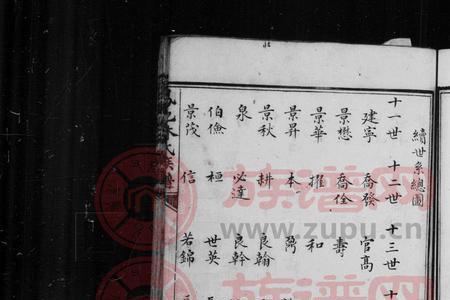 續世系總圖
十一世 十二世 十三世
建寧 喬發 官高
景懋 喬佺 壽
景華 擢 和
景昇 本
景秋 耕 良翰
泉 必達 良幹
伯儉 桓 世英
景茂 信 若錦
族谱网
www.zupu.cn
族谱网